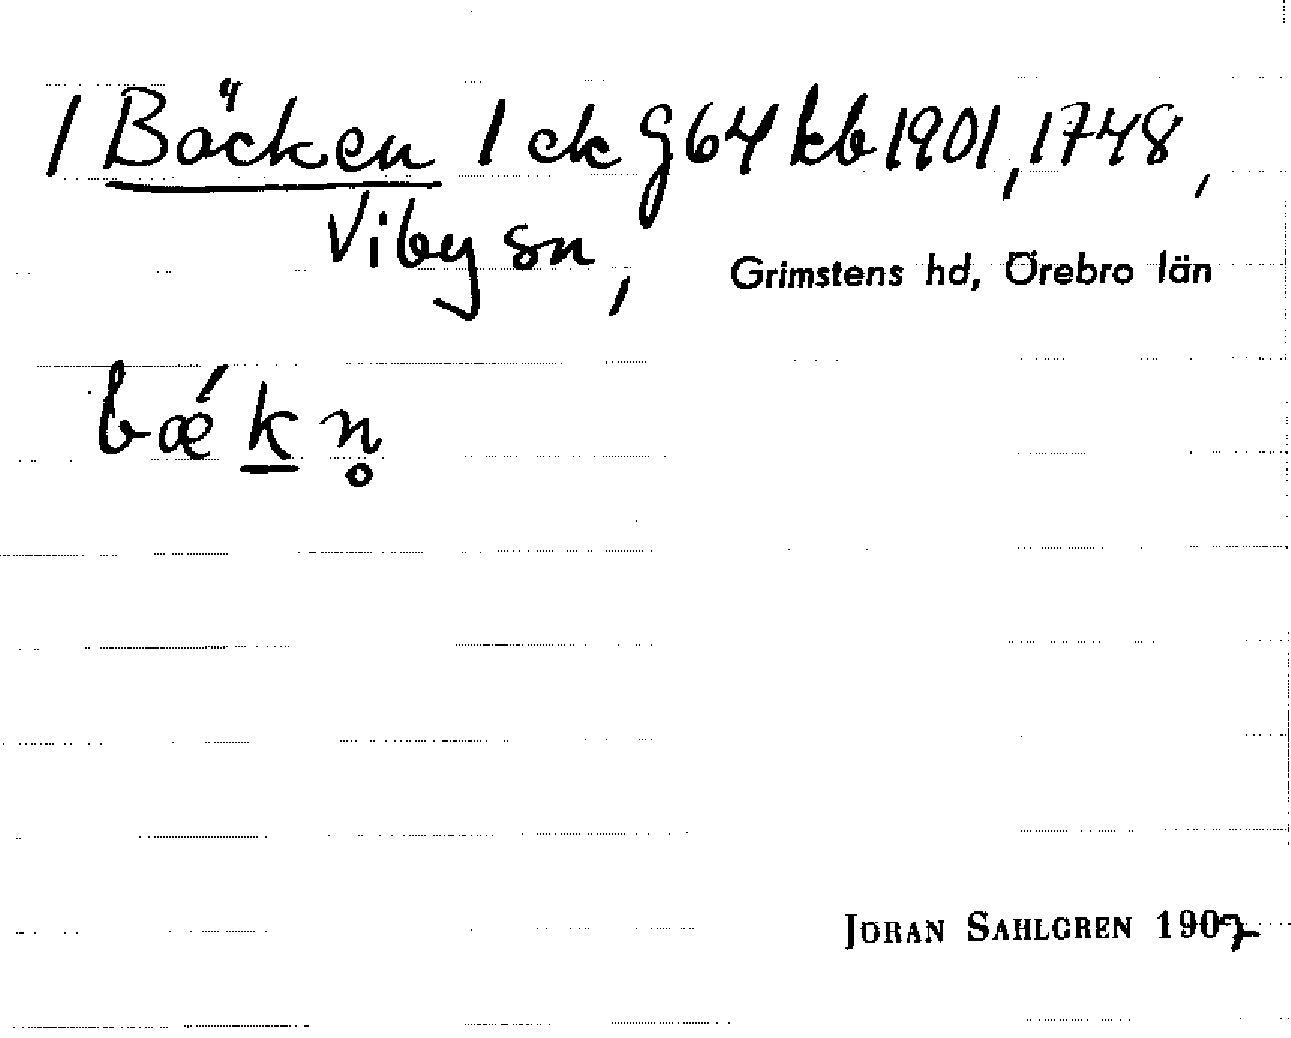 / Bäcken 1 ck g64 kb 1901, 1748,
Viby sn, Grimstens hd, Örebro län
bǽk̲n̥
JÖRAN SAHLGREN 1907